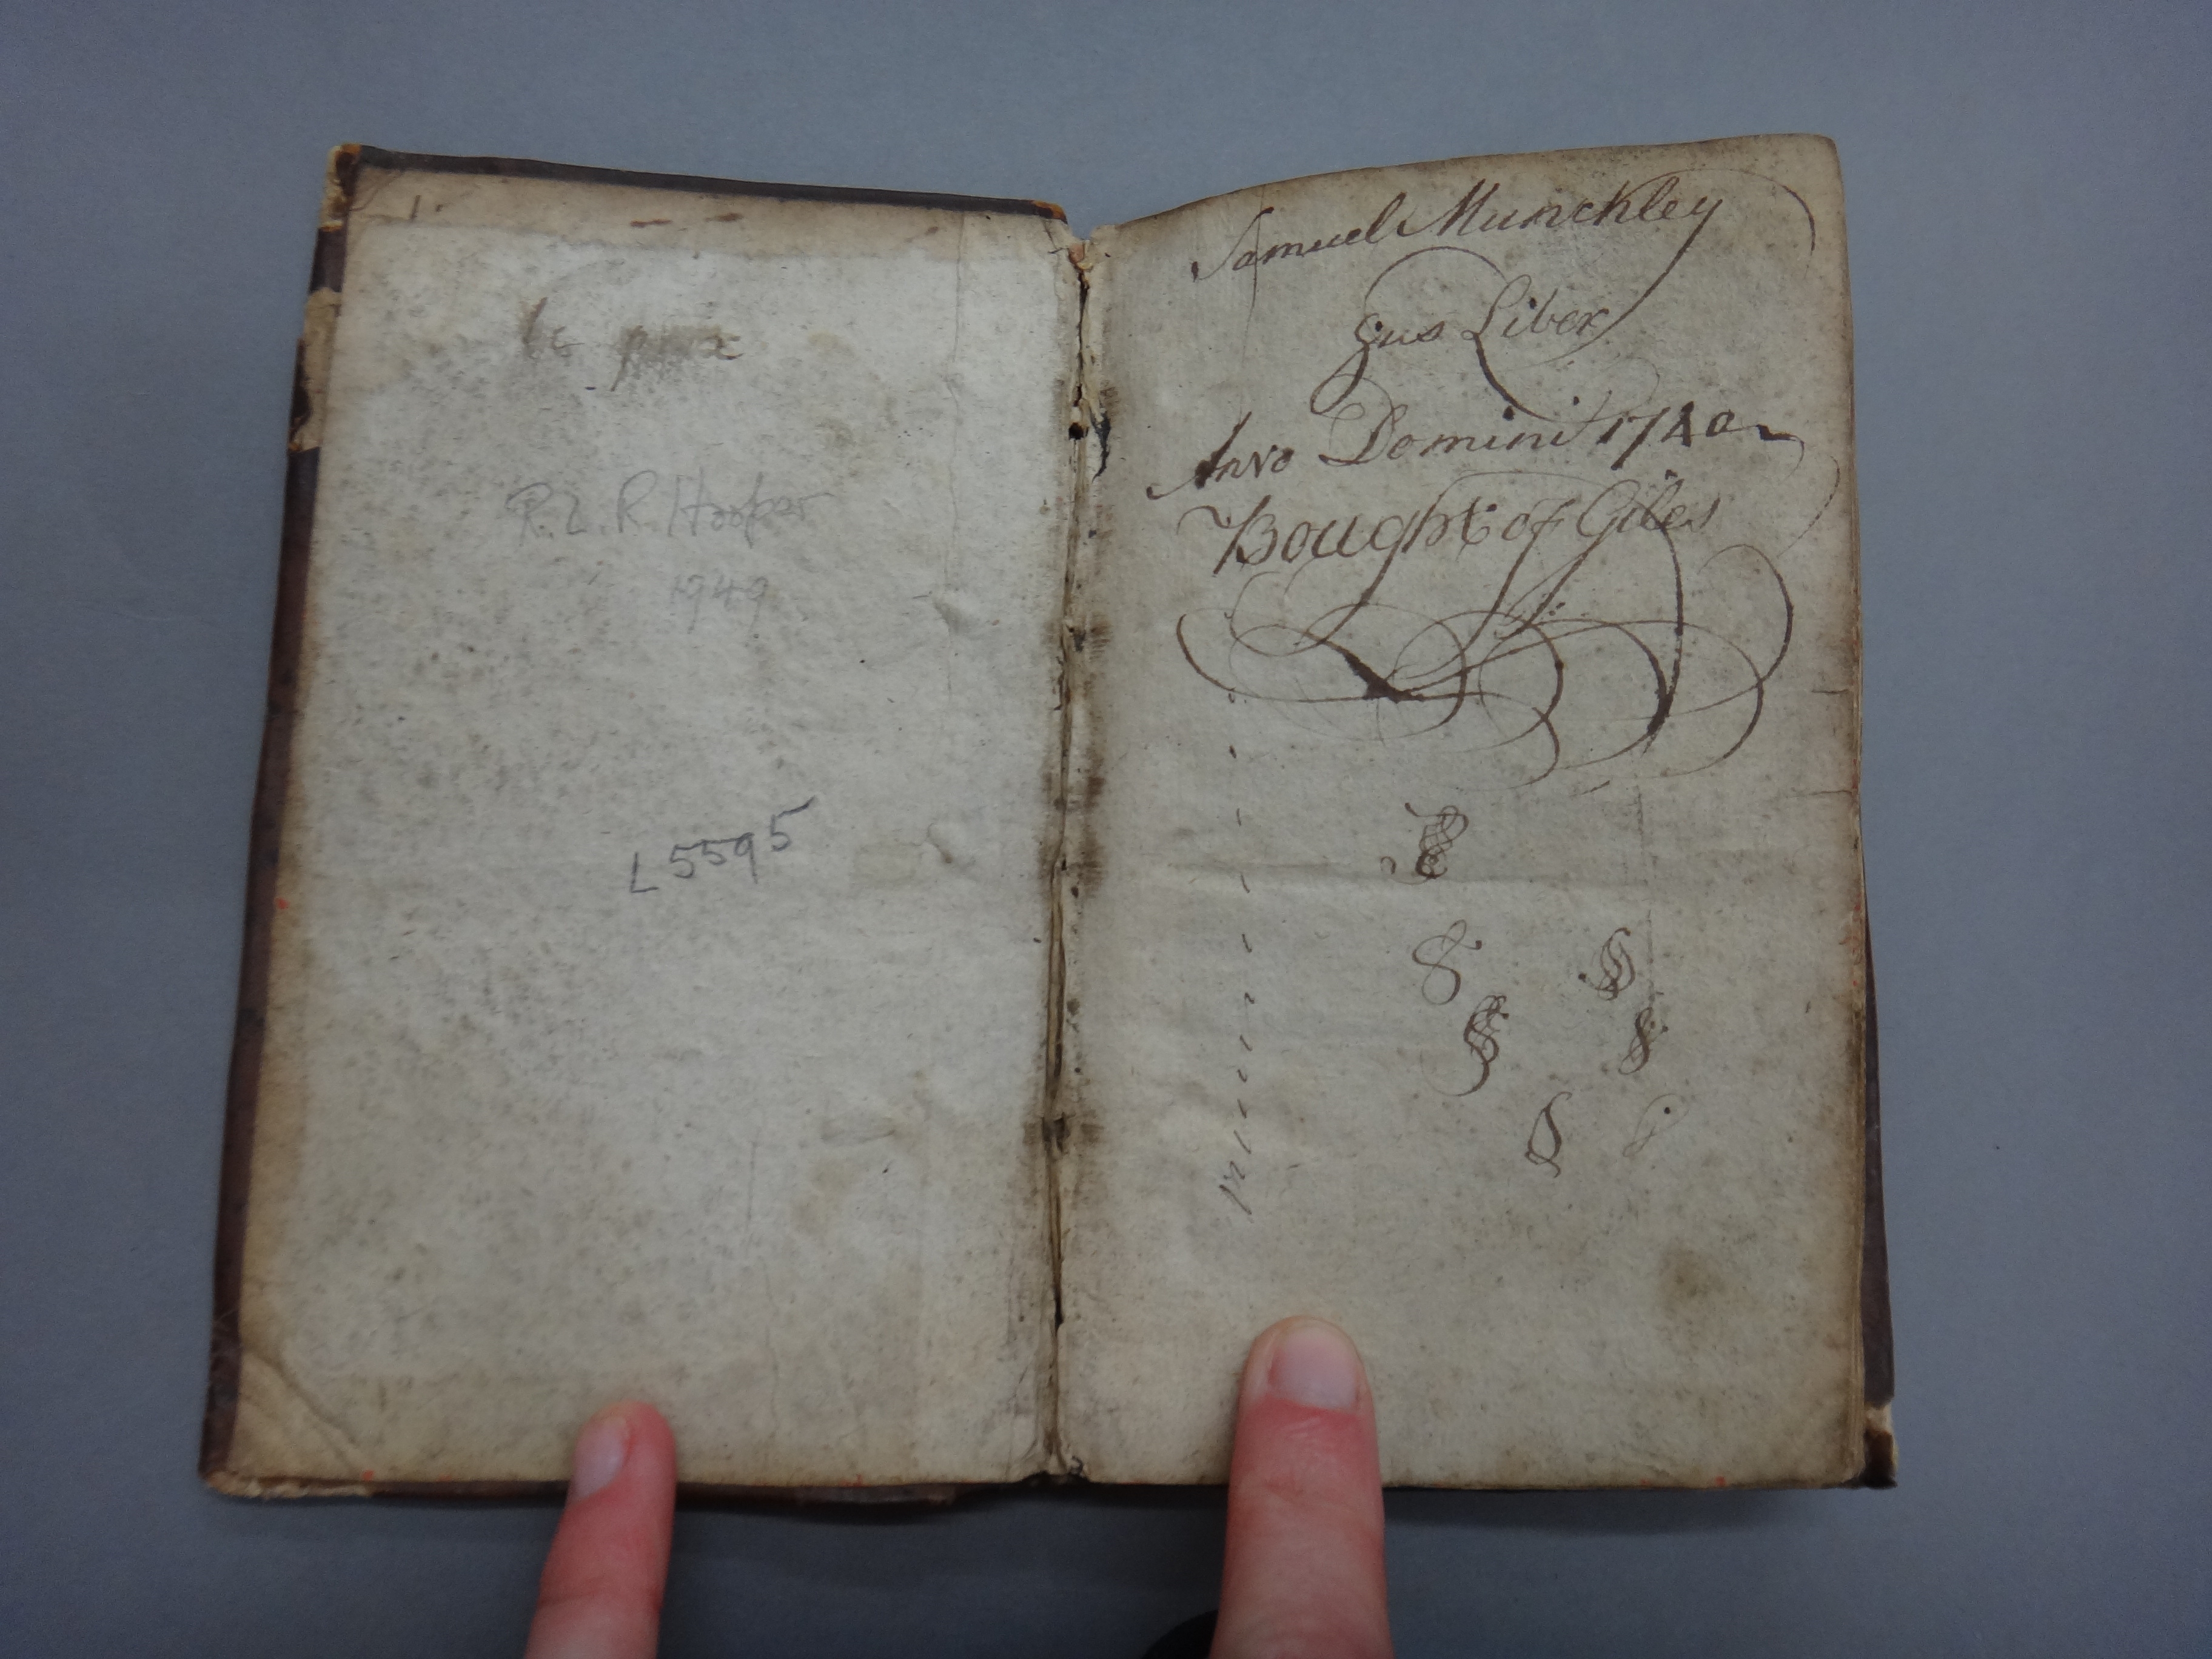 R. L. R. Hooper
1949
L5595
Samuel Munckley
Ejus Liber
Anno Domini 1740
Bought of Giles